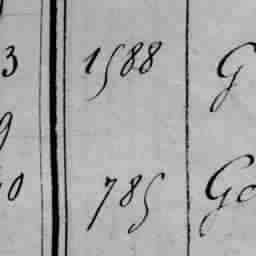 3 1588 G
9
0 785 Go